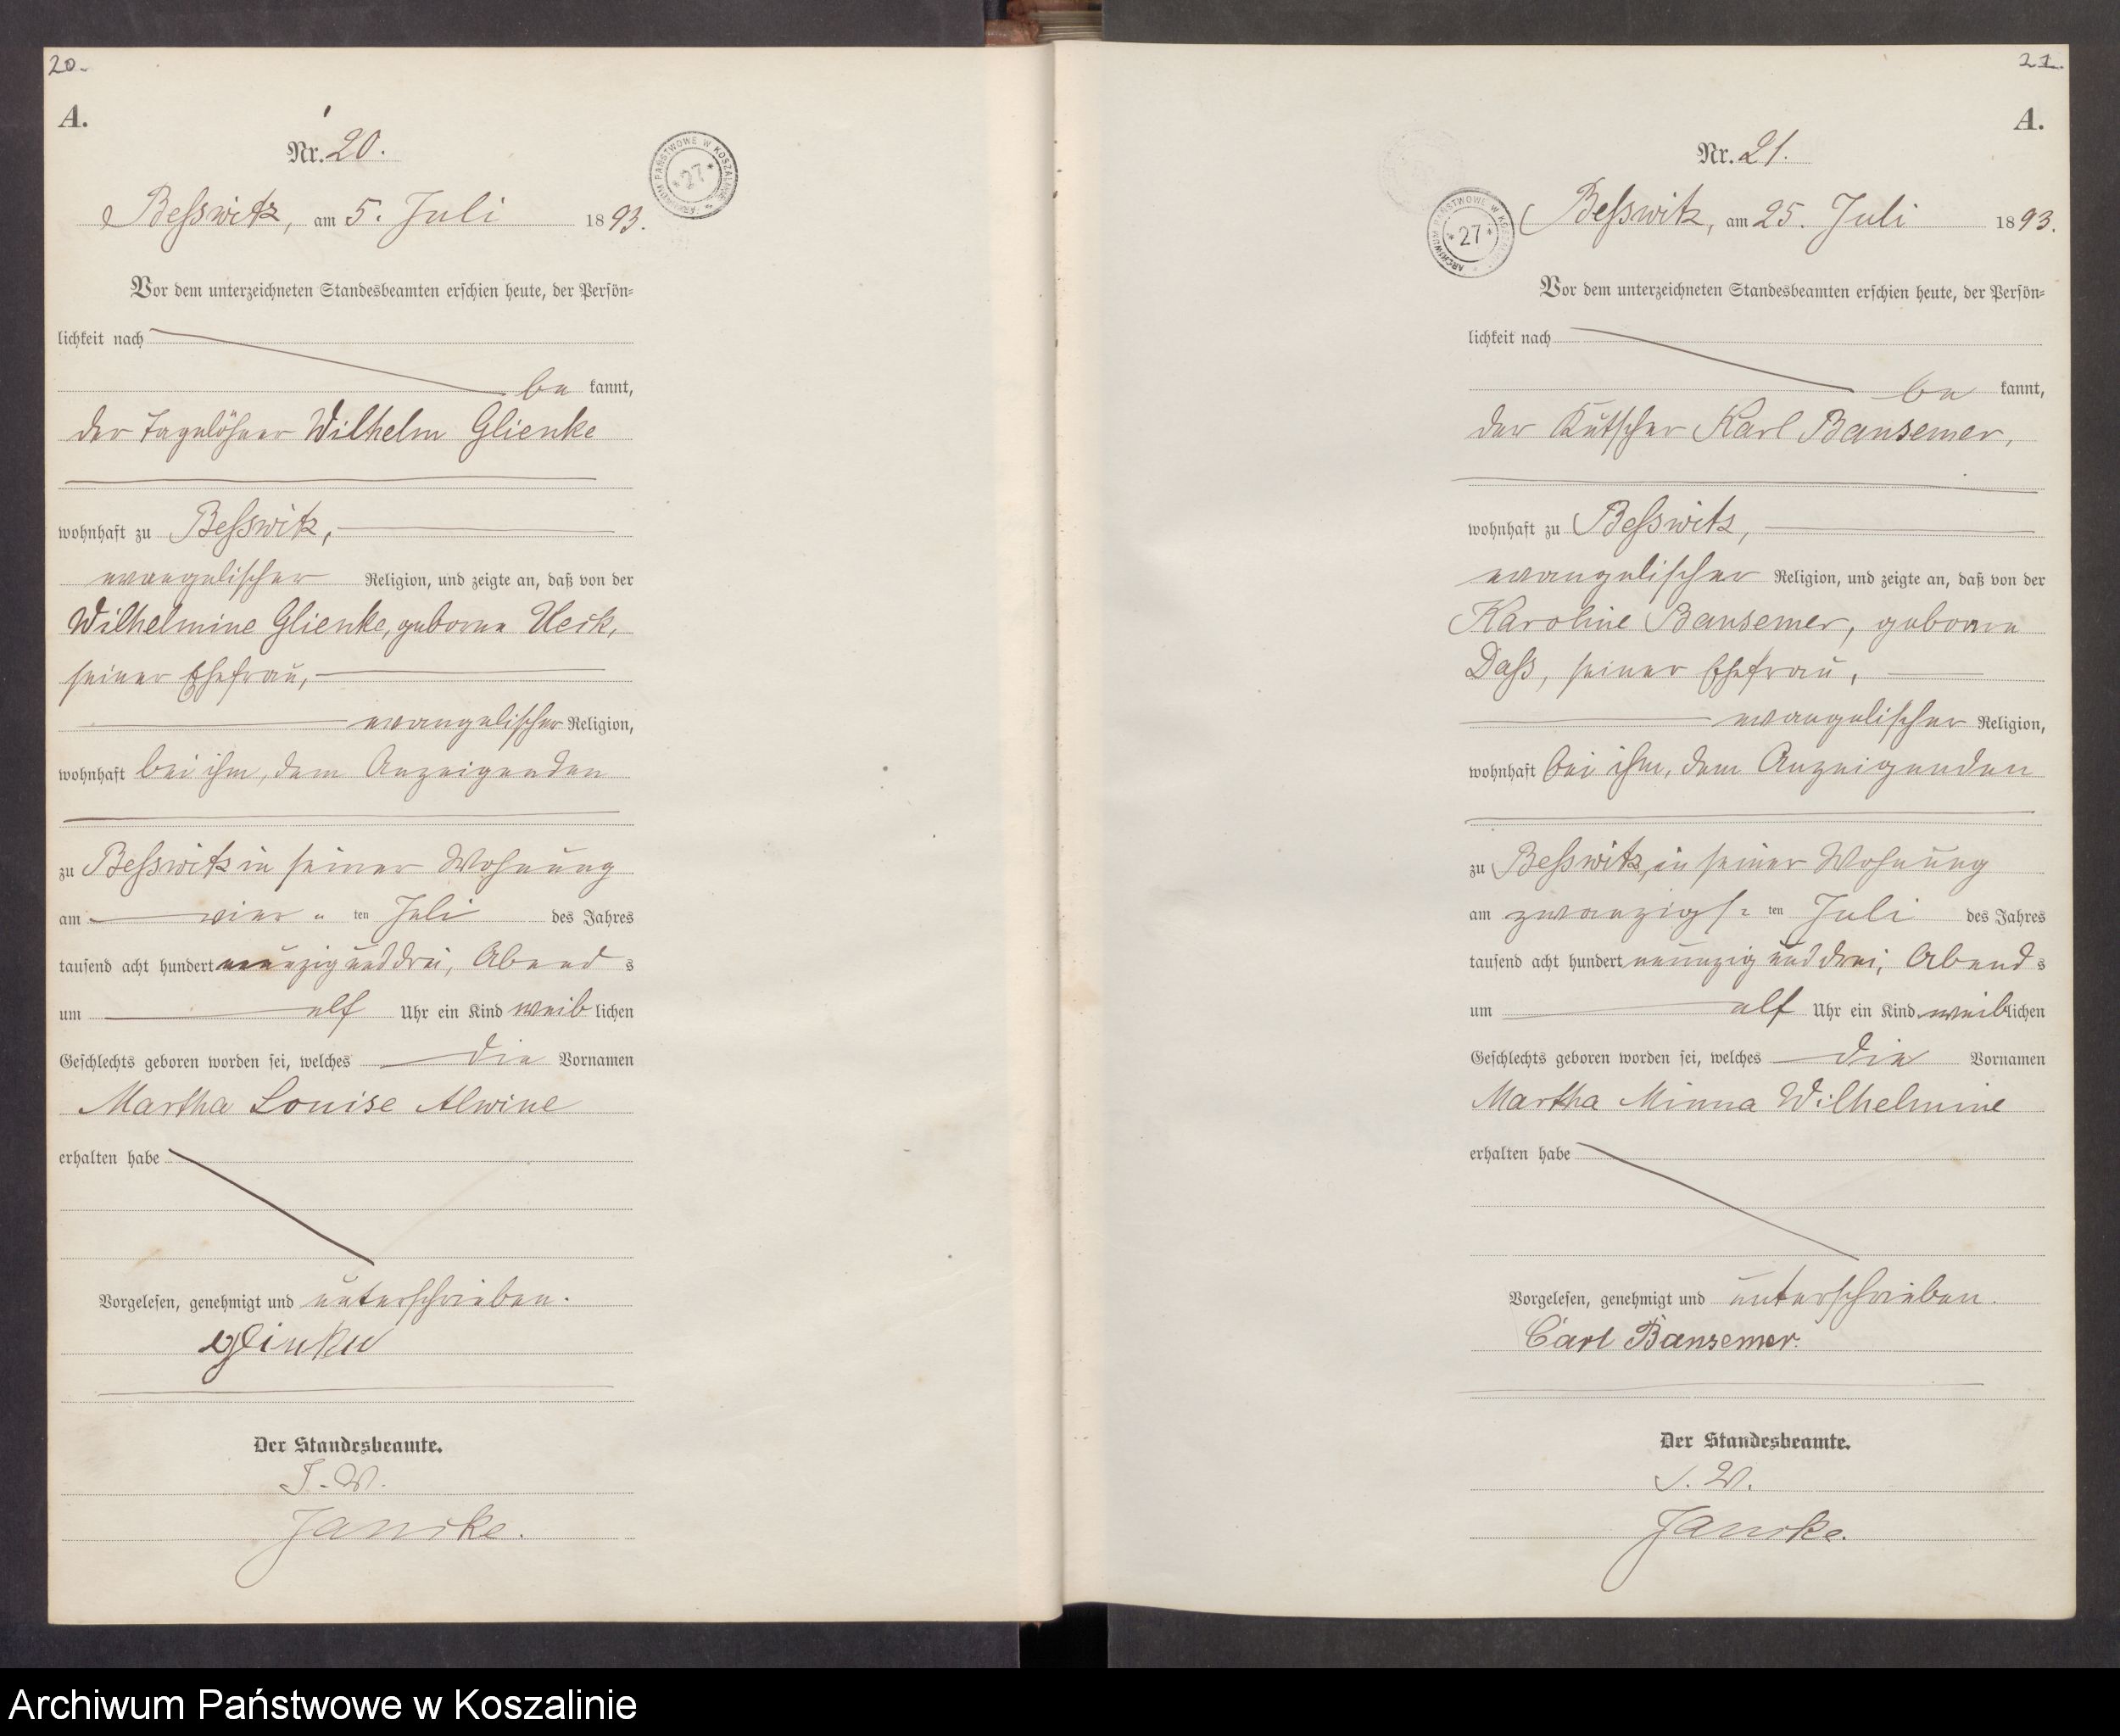 20.
A.
Nr. 20.
ARCHIWUM PAŃSTWOWE W KOSZALINIE
* 27 *
Beßwitz, am 5. Juli 1893.
Vor dem unterzeichneten Standesbeamten erschien heute, der Persön-
lichkeit nach
be kannt,
der Tagelöhner Wilhelm Glienke
wohnhaft zu Beßwitz,
evangelischer Religion, und zeigte an, daß von der
Wilhelmine Glienke, geborne Heck,
seiner Ehefrau,
evangelischer Religion,
wohnhaft bei ihm, dem Anzeigenden
zu Beßwitz in seiner Wohnung
am vier " ten Juli des Jahres
tausend acht hundert neunzig und drei, Abend s
um elf Uhr ein Kind weib lichen
Geschlechts geboren worden sei, welches die Vornamen
Martha Louise Alwine
erhalten habe
Vorgelesen, genehmigt und unterschrieben.
Glinke
Der Standesbeamte.
I. V.
Janicke.
21.
A.
Nr. 21.
ARCHIWUM PAŃSTWOWE W KOSZALINIE
* 27 *
Beßwitz, am 25. Juli 1893.
Vor dem unterzeichneten Standesbeamten erschien heute, der Persön-
lichkeit nach
be kannt,
der Kutscher Karl Bansemer,
wohnhaft zu Beßwitz,
evangelischer Religion, und zeigte an, daß von der
Karoline Bansemer, geborne
Daß, seiner Ehefrau,
evangelischer Religion,
wohnhaft bei ihm, dem Anzeigenden
zu Beßwitz, in seiner Wohnung
am zwanzigs- ten Juli des Jahres
tausend acht hundert neunzig und drei, Abend s
um elf Uhr ein Kind weib lichen
Geschlechts geboren worden sei, welches die Vornamen
Martha Minna Wilhelmine
erhalten habe
Vorgelesen, genehmigt und unterschrieben.
Carl Bansemer.
Der Standesbeamte.
I. V.
Janicke.
Archiwum Państwowe w Koszalinie